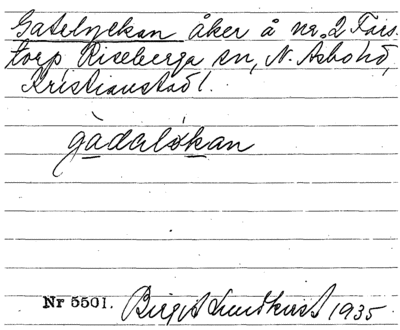 Gatelyckan åker å nr. 2 Fars-
torp Riseberga sn, N. Åsbo hd,
Kristianstad l.
gàdalókan
Nr 5501. Birgit Lundkvist 1935